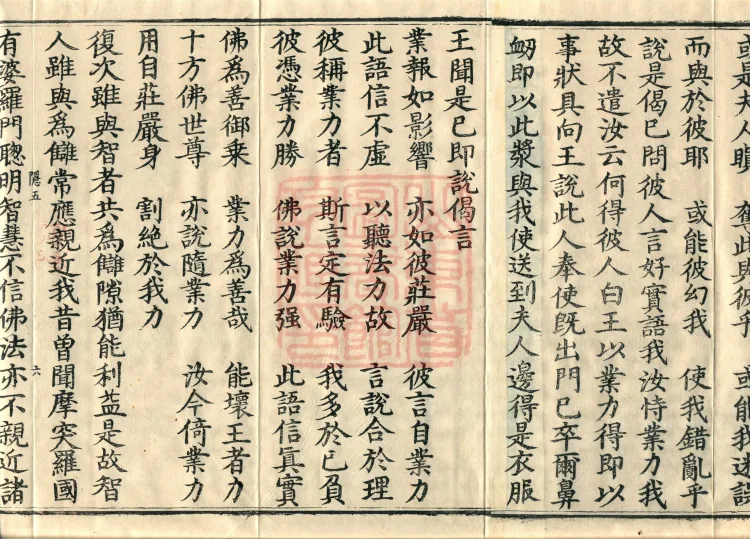 或是夫人瞋　奪此與彼乎　或能我遺
而與於彼耶　或能彼幻我　使我錯亂乎
說是偈已問彼人言好實語我汝恃業力我
故不遣汝云何得彼人白王以業力得即以
事狀具向王說此人奉使既出門已卒爾鼻
衂即以此漿與我使送到夫人邊得是衣服
王聞是已即說偈言
業報如影響　亦如彼莊嚴　彼言自業力
此語信不虛　以聽法力故　言說合於理
彼稱業力者　斯言定有驗　我多於已負
彼憑業力勝　佛說業力强　此語信眞實
佛爲善御乘　業力爲善哉　能壞王者力
十方佛世尊　亦說隨業力　汝今倚業力
用自莊嚴身　割絶於我力
復次雖與智者共爲讎隙猶能利益是故智
人雖與爲讎常應親近我昔曾聞摩突羅國
隠五　六
有婆羅門聰明智慧不信佛法亦不親近諸